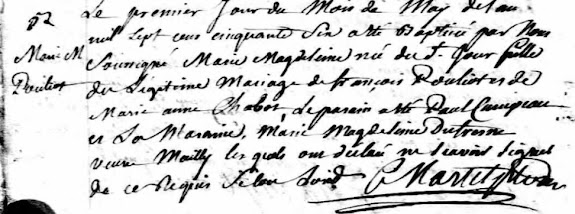 Le premier Jour du Mois de May de l'an
mil Sept cens cinquante Six a esté Baptisé par Nous
Marie M
Soussigné Marie Magdeleine née du d. Jour fille
Pouliot
du Legitime Mariage de françois Pouliot et de
Marie anne Chabot, Le parain a esté Paul Campeau
et La Maranne, Marie Magdeleine Dufresne
veuve Mailly les quels ont déclaré ne Scavoir Signer
de ce Requis Selon Lord.